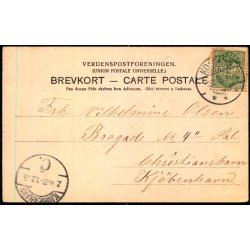 VERDENSPOSTFORENINGEN.
(UNION POSTALE UNIVERSELLE.)
BREVKORT — CARTE POSTALE
Paa denne Side skrives kun Adressen. Côté réservé à l'adresse.
Frk Vilhelmine Olsen
Brogade No 4 II Sal
Christianshavn
Kjöbenhavn